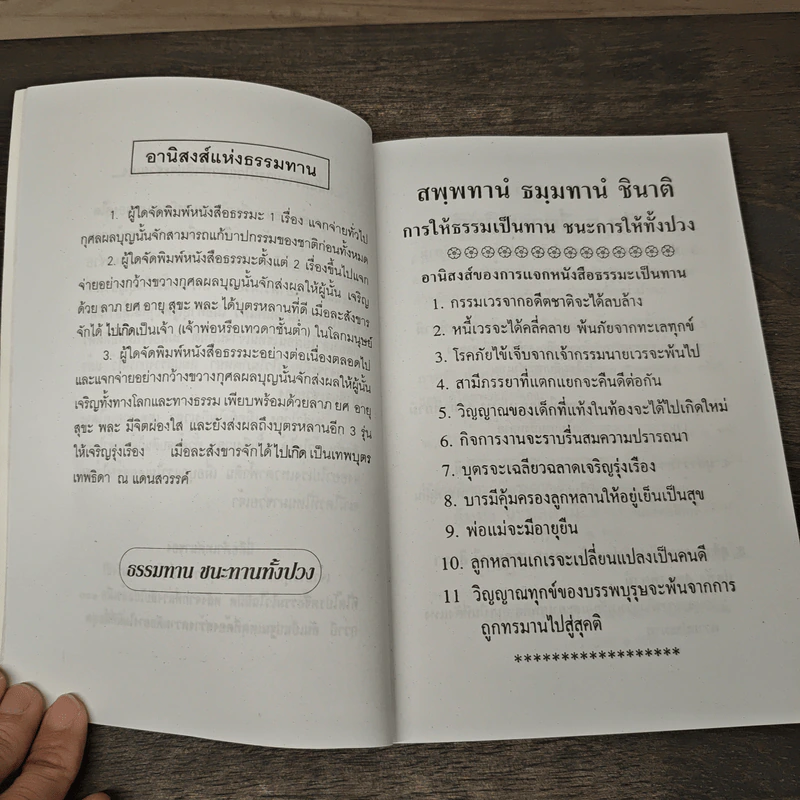 อานิสงส์แห่งธรรมทาน
1. ผู้ใดจัดพิมพ์หนังสือธรรมะ 1 เรื่อง แจกจ่ายทั่วไป
กุศลผลบุญนั้นจักสามารถแก้บาปกรรมของชาติก่อนทั้งหมด
2. ผู้ใดจัดพิมพ์หนังสือธรรมะตั้งแต่ 2 เรื่องขึ้นไปแจก
จ่ายอย่างกว้างขวางกุศลผลบุญนั้นจักส่งผลให้ผู้นั้น เจริญ
ด้วย ลาภ ยศ อายุ สุขะ พละ ได้บุตรหลานที่ดี เมื่อละสังขาร
จักได้ ไปเกิดเป็นเจ้า (เจ้าพ่อหรือเทวดาชั้นต่ำ) ในโลกมนุษย์
3. ผู้ใดจัดพิมพ์หนังสือธรรมะอย่างต่อเนื่องตลอดไป
และแจกจ่ายอย่างกว้างขวางกุศลผลบุญนั้นจักส่งผลให้ผู้นั้น
เจริญทั้งทางโลกและทางธรรม เพียบพร้อมด้วยลาภ ยศ อายุ
สุขะ พละ มีจิตผ่องใส และยังส่งผลถึงบุตรหลานอีก 3 รุ่น
ให้เจริญรุ่งเรือง เมื่อละสังขารจักได้ ไปเกิด เป็นเทพบุตร
เทพธิดา ณ แดนสวรรค์
ธรรมทาน ชนะทานทั้งปวง
สพฺพทานํ ธมฺมทานํ ชินาติ
การให้ธรรมเป็นทาน ชนะการให้ทั้งปวง
อานิสงส์ของการแจกหนังสือธรรมะเป็นทาน
1. กรรมเวรจากอดีตชาติจะได้ลบล้าง
2. หนี้เวรจะได้คลี่คลาย พ้นภัยจากทะเลทุกข์
3. โรคภัยไข้เจ็บจากเจ้ากรรมนายเวรจะพ้นไป
4. สามีภรรยาที่แตกแยกจะคืนดีต่อกัน
5. วิญญาณของเด็กที่แท้งในท้องจะได้ไปเกิดใหม่
6. กิจการงานจะราบรื่นสมความปรารถนา
7. บุตรจะเฉลียวฉลาดเจริญรุ่งเรือง
8. บารมีคุ้มครองลูกหลานให้อยู่เย็นเป็นสุข
9. พ่อแม่จะมีอายุยืน
10. ลูกหลานเกเรจะเปลี่ยนแปลงเป็นคนดี
11 วิญญาณทุกข์ของบรรพบุรุษจะพ้นจากการ
ถูกทรมานไปสู่สุคติ
******************